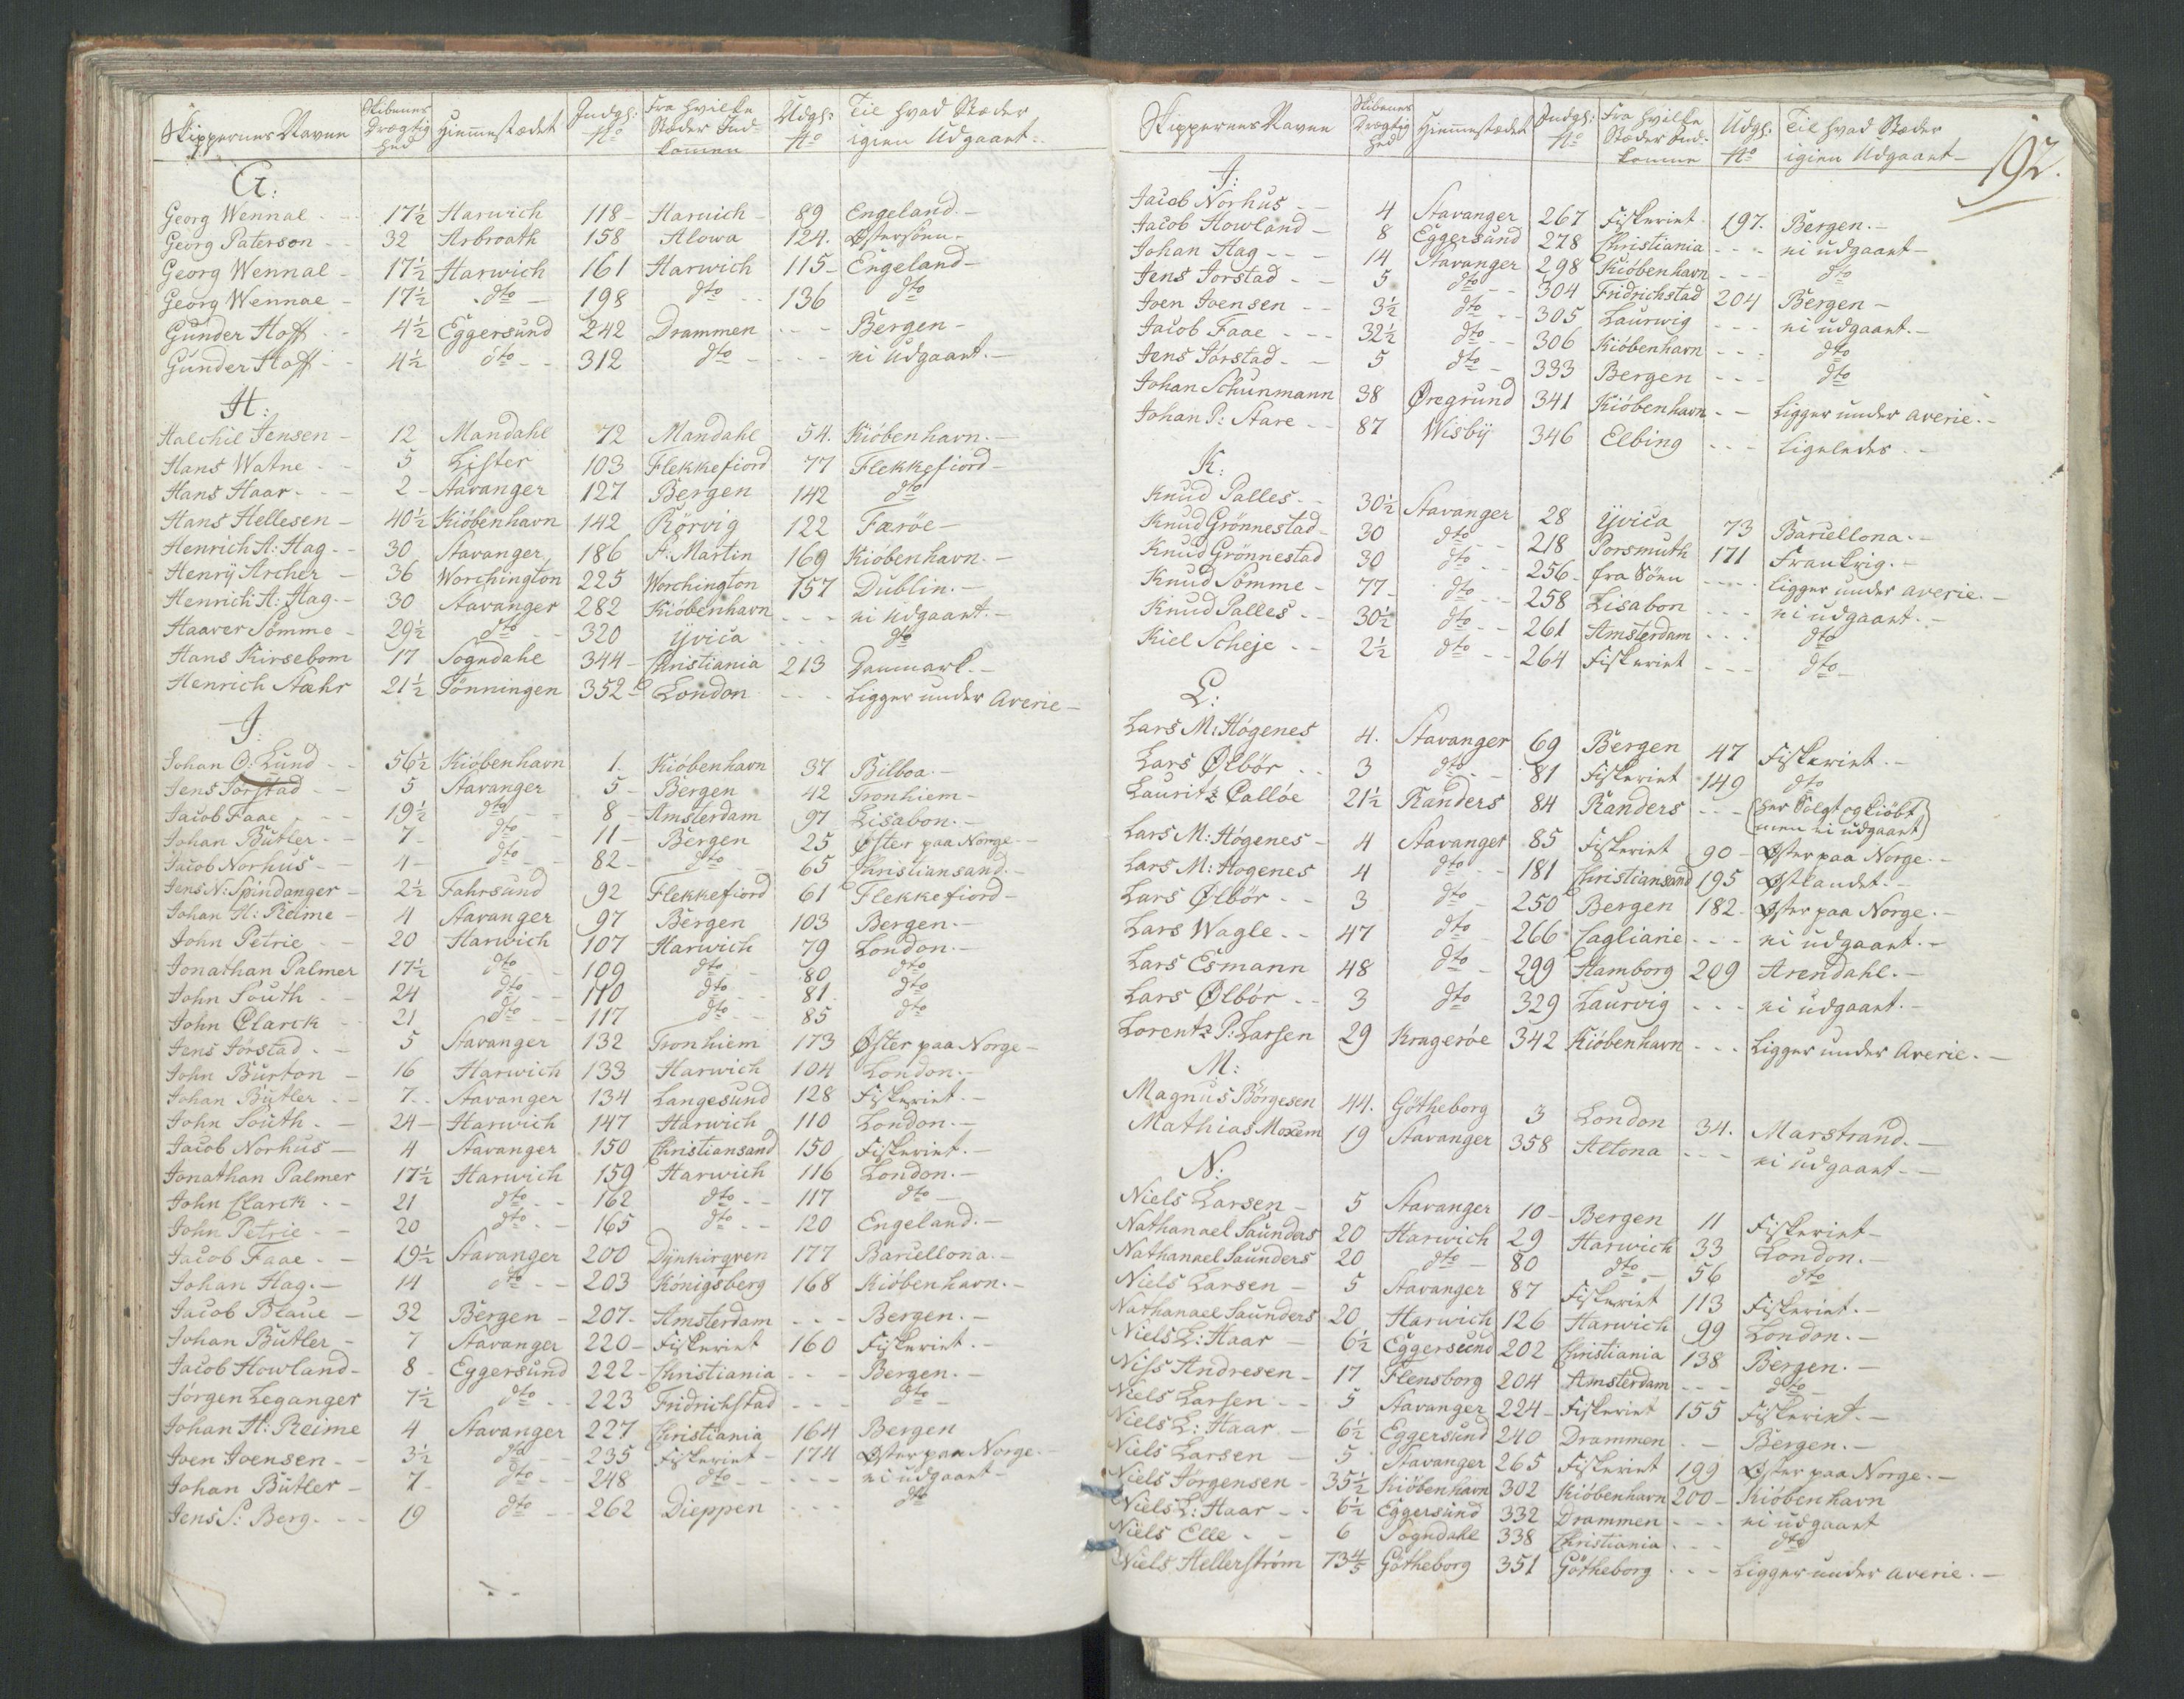 Skippernes Navne | Skibenes Drægtighed | Hiemmestædet | Indgh: No | Fra hvilke Stæder Indkomen | Udgh: No | Til hvad Stæder igien Udgaaet
G:
Georg Wennal - 17½ Harwich 118 - Harwich - 89 Engeland. -
Georg Paterson - 32 Arbroath 158 Alowa 124. Østersöen -
Georg Wennal - 17½ Harwich 161 Harwich 115 - Engeland -
Georg Wennae - 17½ dto - 198 dto - 136 dto
Gunder Hoff - 4½ Eggersund 242 Drammen - - - Bergen -
Gunder Hoff - 4½ dto - - 312 dto - - - - ei udgaaet. -
H:
Halchil Jensen - 12 Mandahl 72 Mandahl 54. Kiöbenhavn. -
Hans Watne - - 5 Lister 103 Flekkefiord 77 Flekkefiord -
Hans Haar - - - 2 - Stavanger 127 Bergen 142 dto
Hans Hellesen - 40½ Kiöbenhavn 142 Rörvig 122 Færöe -
Henrich A: Hag - - 30 Stavanger 186 St. Martin 169 Kiöbenhavn. -
Henrÿ Archer - 36 Worchington 225 Worchington 157 Dublin. -
Henrich A: Hag - - 30 Stavanger 282 Kiöbenhavn - - - ei udgaaet. -
Haaver Sömme - 29½ dto - - 320 Ÿvica - - - dto
Hans Kirsebom 17 Sogndahl 344 - Christiania 213 Danmark. -
Henrich Stæhr 21½ Tönningen 352 - London - - - Ligger under Averie -
J:
Johan O: Lund - - 56½ Kiöbenhavn 1 - Kiöbenhavn 37 Bilboa. -
Jens Torstad - - 5 Stavanger 5 - Bergen 42 Tronhiem -
Jacob Faae - - - 19½ dto - - 8 - Amsterdam 97 Lisabon. -
Johan Butler - - 7 - dto - - 11 - Bergen 25 Øster paa Norge -
Jacob Norhus - - 4 - dto - - 82 - dto - 65 Christiansand. -
Jens N: Spindanger - 2½ Fahrsund 92 Flekkefiord 61 Flekkefiord -
Johan H: Reime - 4 Stavanger 97 Bergen 103 Bergen. -
John Petrie - - 20 Harwich 107 Harwich 79 London. -
Jonathan Palmer 17½ dto - 109 dto - 80 dto
John South - - 24 dto - - 110 dto - - 81 dto
John Clarck - 21 dto - - 117 dto - - 85 dto
Jens Jörstad - - 5 Stavanger 132 Tronhiem 173 Øster paa Norge -
John Burton - 16 Harwich 133 Harwich 104 London. -
Johan Butler - - 7 - Stavanger 134 Langesund 128 Fiskeriet. -
John South - - 24 - Harwich 147 Harwich 110 London. -
Jacob Norhus - 4 Stavanger 150 Christiansand 150 Fiskeriet. -
Jonathan Palmer 17½ Harwich 159 Harwich 116 London. -
John Clarck - - 21 dto - - 162 dto - - 117 dto -
John Petrie - - 20 dto - - 165 dto - - 120 Engeland. -
Jacob Faae - - 19½ Stavanger 200 Dÿnkirqven 177 Barcellona. -
Johan Hag. - 14 dto - - 203 Königsberg 168 Kiöbenhavn. -
Jacob Blaue - 32 Bergen - 207 - Amsterdam - - - Bergen. -
Johan Butler - 7 Stavanger 220 - Fiskeriet 160 Fiskeriet. -
Jacob Howland - 8 - Eggersund 222 - Christiania - - - Bergen. -
Jörgen Leganger 7½ dto - - 223 Fridrichstad - - - dto -
Johan H: Reime 4 Stavanger 227 Christiania 164 Bergen
Iven Ivensen - - 3½ dto - - 235 Fiskeriet - 174 Øster paa Norge -
Johan Butler - 7 - dto - - 248 dto - - - - ei udgaaet -
Jens S: Berg - - - 19 dto - - 262 Dieppen - - - dto
192.
Skippernes Navne | Skibenes Drægtighed | Hiemmestædet | Indgh: No | Fra hvilke Stæder Indkomne | Udgh: No | Til hvad Stæder igien Udgaaet -
J:
Jacob Norhus - - 4 Stavanger 267 Fiskeriet 197. Bergen. -
Jacob Howland - 8 Eggersund 278 Christiania - - - ei udgaaet -
Johan Hag - - - 14 Stavanger 298 Kiöbenhavn - - - dto
Jens Jorstad - - 5 dto - - 304 Fridrichstad 204 Bergen -
Iven Ivensen - - 3½ dto - - 305 Laurwig - - - ei udgaaet. -
Jacob Faae - - - 32½ dto - - 306 Kiöbenhavn - - - dto
Jens Jörstad - - 5 dto - 333 Bergen - - - dto
Johan Schunmann 38 Øregrund 341 Kiöbenhavn - - Ligger under averie. -
Johan P: Stare - - 87 Wisbÿ 346 Elbing - - - Ligeledes - -
K:
Knud Palles - - 30½ Stavanger 28 Ÿvica 73 Barcellona. -
Knud Grönnestad - 30 dto - - 218 Porsmuth 171 Frankrig. -
Knud Grönnestad 30 dto - - 256 - fra Söen - - - Ligger under averie. -
Knud Sömme - 77 - dto - - 258 Lisabon - - - ei udgaaet. -
Knud Palles - - 30½ dto - - 261 Amsterdam - - - dto
Kiel Scheje - - 2½ dto - - 264 Fiskeriet - - - dto -
L:
Lars M: Högenes 4. Stavanger 69 Bergen 47 Fiskeriet. -
Lars Ölbör - - 3 dto - - 81 Fiskeriet 149 dto
Lauritz Calløe 21½ Randers 84 Randers - - - (her Solgt og kiöbt men ei udgaaet)
Lars M: Högenes - 4 Stavanger 85 Fiskeriet 90 - Øster paa Norge. -
Lars M: Hogenes 4 dto - - 181 Christiansand 195 Østlandet. -
Lars Ölbör - - 3 dto - 250 Bergen 182 - Øster paa Norge. -
Lars Wagle - - 47 dto 266 Cagliarie - - - ei udgaaet. -
Lars Esmann 48 dto - 299 Hamborg 209 Arendahl. -
Lars Ölbör - - 3 dto 329 Laurvig - - - ei udgaaet. -
Lorentz P: Larsen 29 Kragerøe 342 Kiöbenhavn - - - Ligger under Averie. -
M:
Magnus Börgesen 44. Götheborg 3 London 34. Marstrand. -
Mathias Moxem 19 Stavanger 358 Altona - - - ei udgaaet - -
N:
Niels Larsen - 5 Stavanger 10 - Bergen 11 Fiskeriet -
Nathanael Saunders 20 Harwich 29 Harwich 33 London. -
Nathanael Saunders 20 dto - 80 dto - 56 dto
Niels Larsen - 5 Stavanger 87 Fiskeriet 113 Fiskeriet. -
Nathanael Saunders 20 Harwich 126 Harwich 99 London. -
Niels L: Haar - 6½ Eggersund 202 Christiania 138 Bergen. -
Niss Andresen - 17 Flensborg 204 Amsterdam - - - dto -
Niels Larsen - - 5 Stavanger 224 - Fiskeriet 155 Fiskeriet. -
Niels L: Haar - 6½ Eggersund 240 Drammen - - Bergen. -
Niels Larsen - 5 Stavanger 265 Fiskeriet 199 Øster paa Norge. -
Niels Jörgensen - 35½ Kiöbenhavn 302 Kiöbenhavn 200 - Kiöbenhavn
Niels L: Haar - - 6½ Eggersund 332 Drammen - - - ei udgaaet
Niels Elle - - 6 Sogndahl 338 Christiania - - - dto
Niels Hellerström 73⅘ Götheborg 351 Götheborg - - - Ligger under averie. -